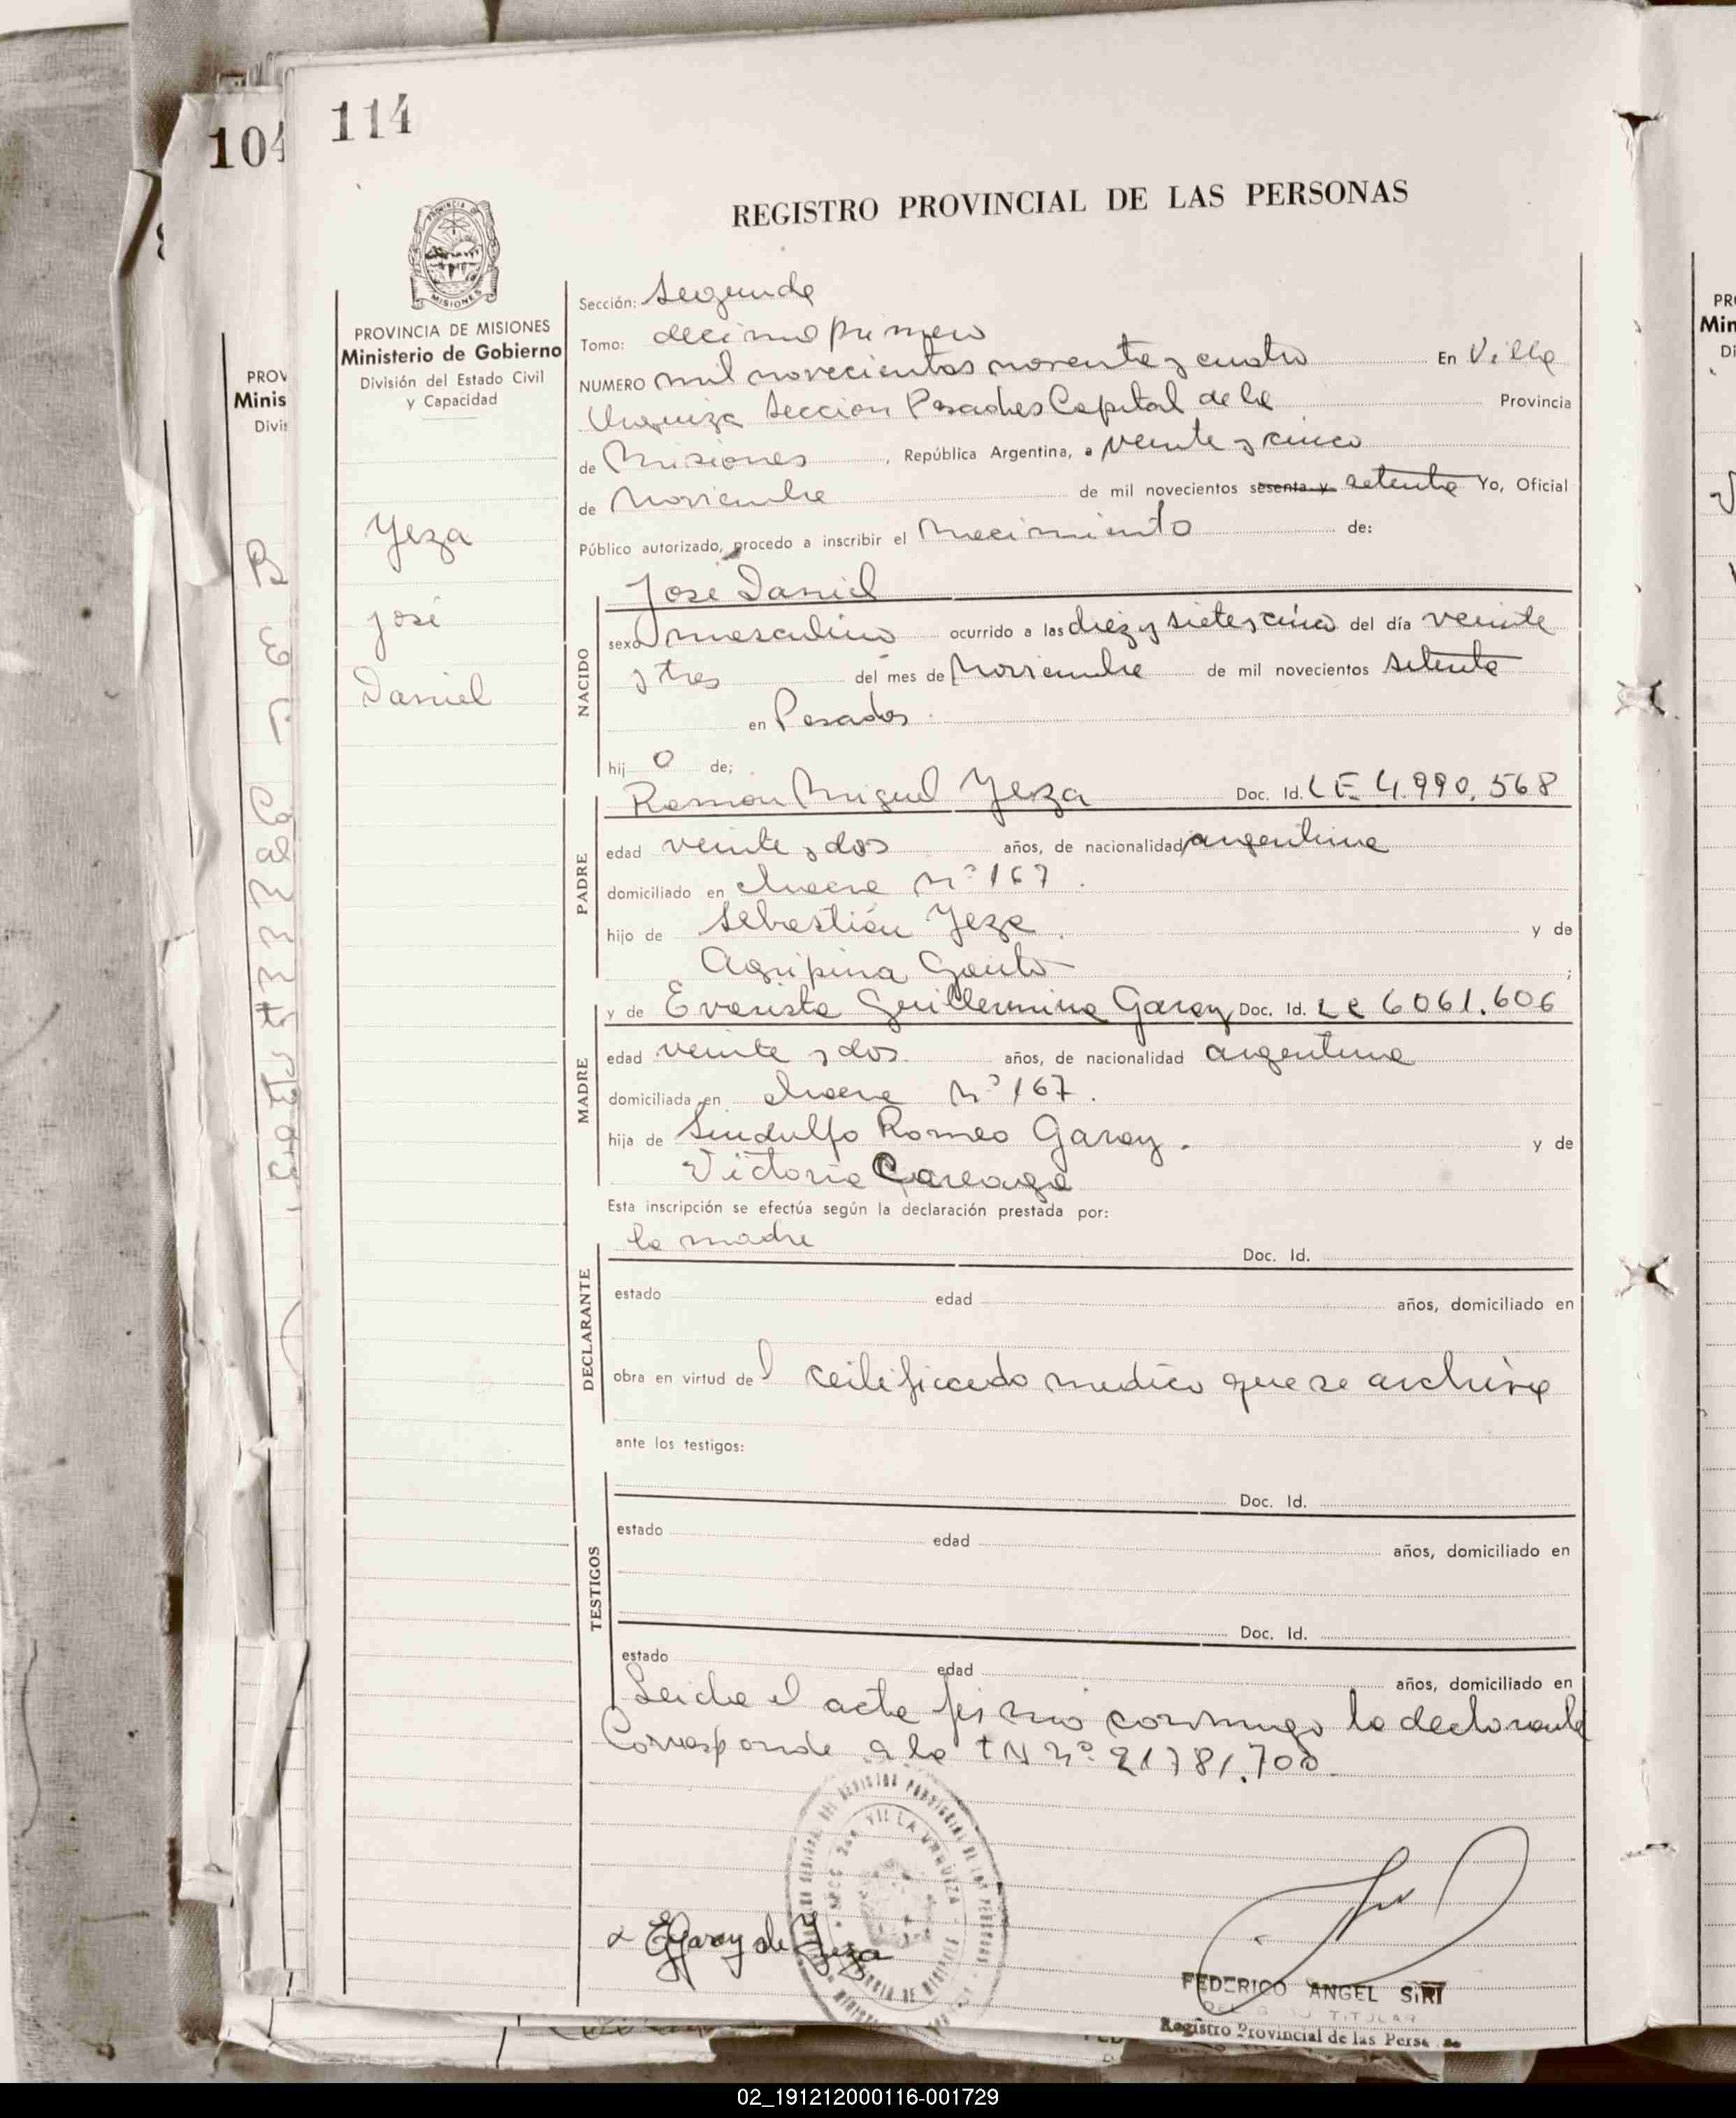 114
104
REGISTRO PROVINCIAL DE LAS PERSONAS
PROVINCIA DE MISIONES
Ministerio de Gobierno
División del Estado Civil
y Capacidad
Yeza
José
Daniel
Sección: Segunda
Tomo: decimo primero
NUMERO mil novecientos noventa y cuatro En Villa
Urquiza Seccion Posadas Capital de la Provincia
de Misiones, República Argentina, a veinte y cinco
de Noviembre de mil novecientos sesenta y setenta Yo, Oficial
Público autorizado, procedo a inscribir el Nacimiento de:
NACIDO
José Daniel
sexo masculino ocurrido a las diez y siete y cinco del día veinte
y tres del mes de Noviembre de mil novecientos setenta
en Posadas.
hijo de;
PADRE
Ramon Miguel Yeza Doc. Id. LE 4.990.568
edad veinte y dos años, de nacionalidad argentina
domiciliado en chacra Nº 167.
hijo de Sebastián Yeza y de
Agripina Gauto;
MADRE
y de Evarista Guillermina Garay Doc. Id. LC 6061.606
edad veinte y dos años, de nacionalidad argentina
domiciliada en chacra Nº 167.
hija de Sindulfo Romeo Garay. y de
Victoria Careaga
Esta inscripción se efectúa según la declaración prestada por:
DECLARANTE
la madre Doc. Id.
estado edad años, domiciliado en
obra en virtud del certificado medico que se archiva
ante los testigos:
TESTIGOS
Doc. Id.
estado edad años, domiciliado en
Doc. Id.
estado edad años, domiciliado en
Leida el acta firmo conmigo la declarante
Corresponde a la TN Nº 21781.700.
E Garay de Yeza
VILLA URQUIZA
FEDERICO ANGEL SIRI
TITULAR
Registro Provincial de las Perso
02_191212000116-001729